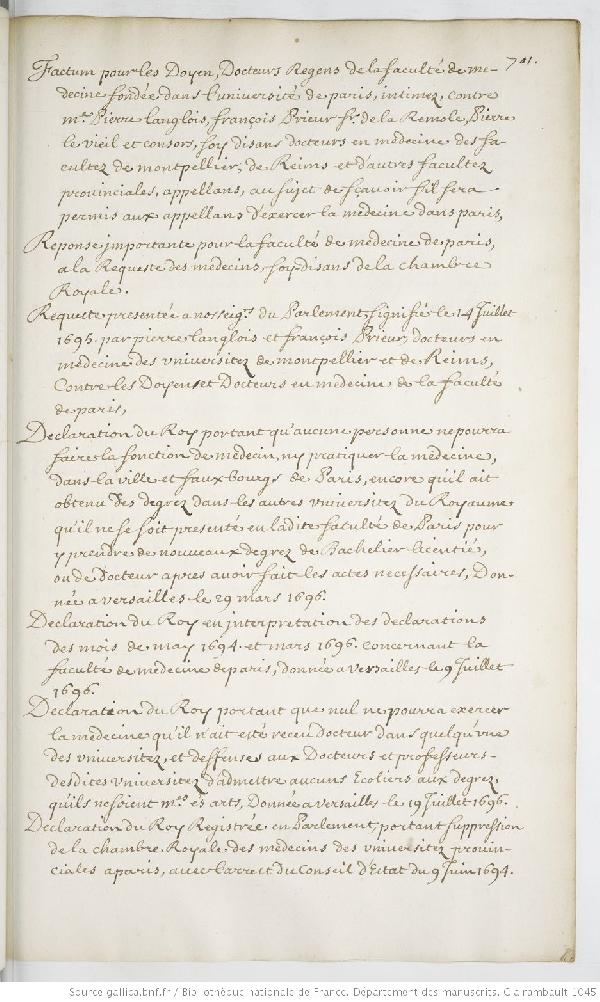 741.
Factum pour les Doyen, Docteurs Regens de la faculté de me-
decine fondée dans l'université de paris, intimez, contre
m.rs Pierre Langlois, françois Prieur s.r de la Remole, Pierre
le vieil et consors, soy disans docteurs en medecine des fa-
cultez de montpellier, de Reims et d'autres facultez
provinciales, appellans, au sujet de sçavoir s'il sera
permis aux appellans d'exercer la medecine dans paris,
Reponse importante pour la faculté de medecine de paris,
a la Requeste des medecins, soy disans de la chambre
Royale.
Requete presentée a nosseig.rs du Parlement, signifié le 14 Juillet
1695. par pierre Langlois et françois Prieur, docteurs en
medecine des vniversitez de montpellier et de Reims,
Contre les Doyen et Docteurs en medecine de la faculté
de paris,
Declaration du Roy portant qu'aucune personne ne pourra
faire la fonction de medecin, ny pratiquer la medecine,
dans la ville et fauxbourgs de Paris, encore qu'il ait
obtenu des degrez dans les autres vniversitez du Royaume
qu'il ne se soit presenté en ladite faculté de Paris pour
y prendre de nouveaux degrez de Bachelier licentié,
ou de Docteur apres avoir fait les actes necessaires, Don-
née a versailles le 29 mars 1696.
Declaration du Roy en interpretation des declarations
des mois de may 1694. et mars 1696. concernant la
faculté de medecine de paris, donnée a versailles le 9 Juillet
1696.
Declaration du Roy portant que nul ne pourra exercer
la medecine qu'il n'ait esté receu Docteur dans quelqu'vne
des vniversitez, et deffenses aux Docteurs et professeurs
desdites vniversitez d'admettre aucuns Ecoliers aux degrez,
qu'ils ne soient m.es és arts, Donnée a versailles le 19 Juillet 1696.
Declaration du Roy Registrée en Parlement, portant suppression
de la chambre Royale des medecins des vniversitez provin-
ciales a paris, avec l'arrest du Conseil d'Estat du 9 Juin 1694.
Source gallica.bnf.fr / Bibliothèque nationale de France. Département des manuscrits. Clairambault 1045